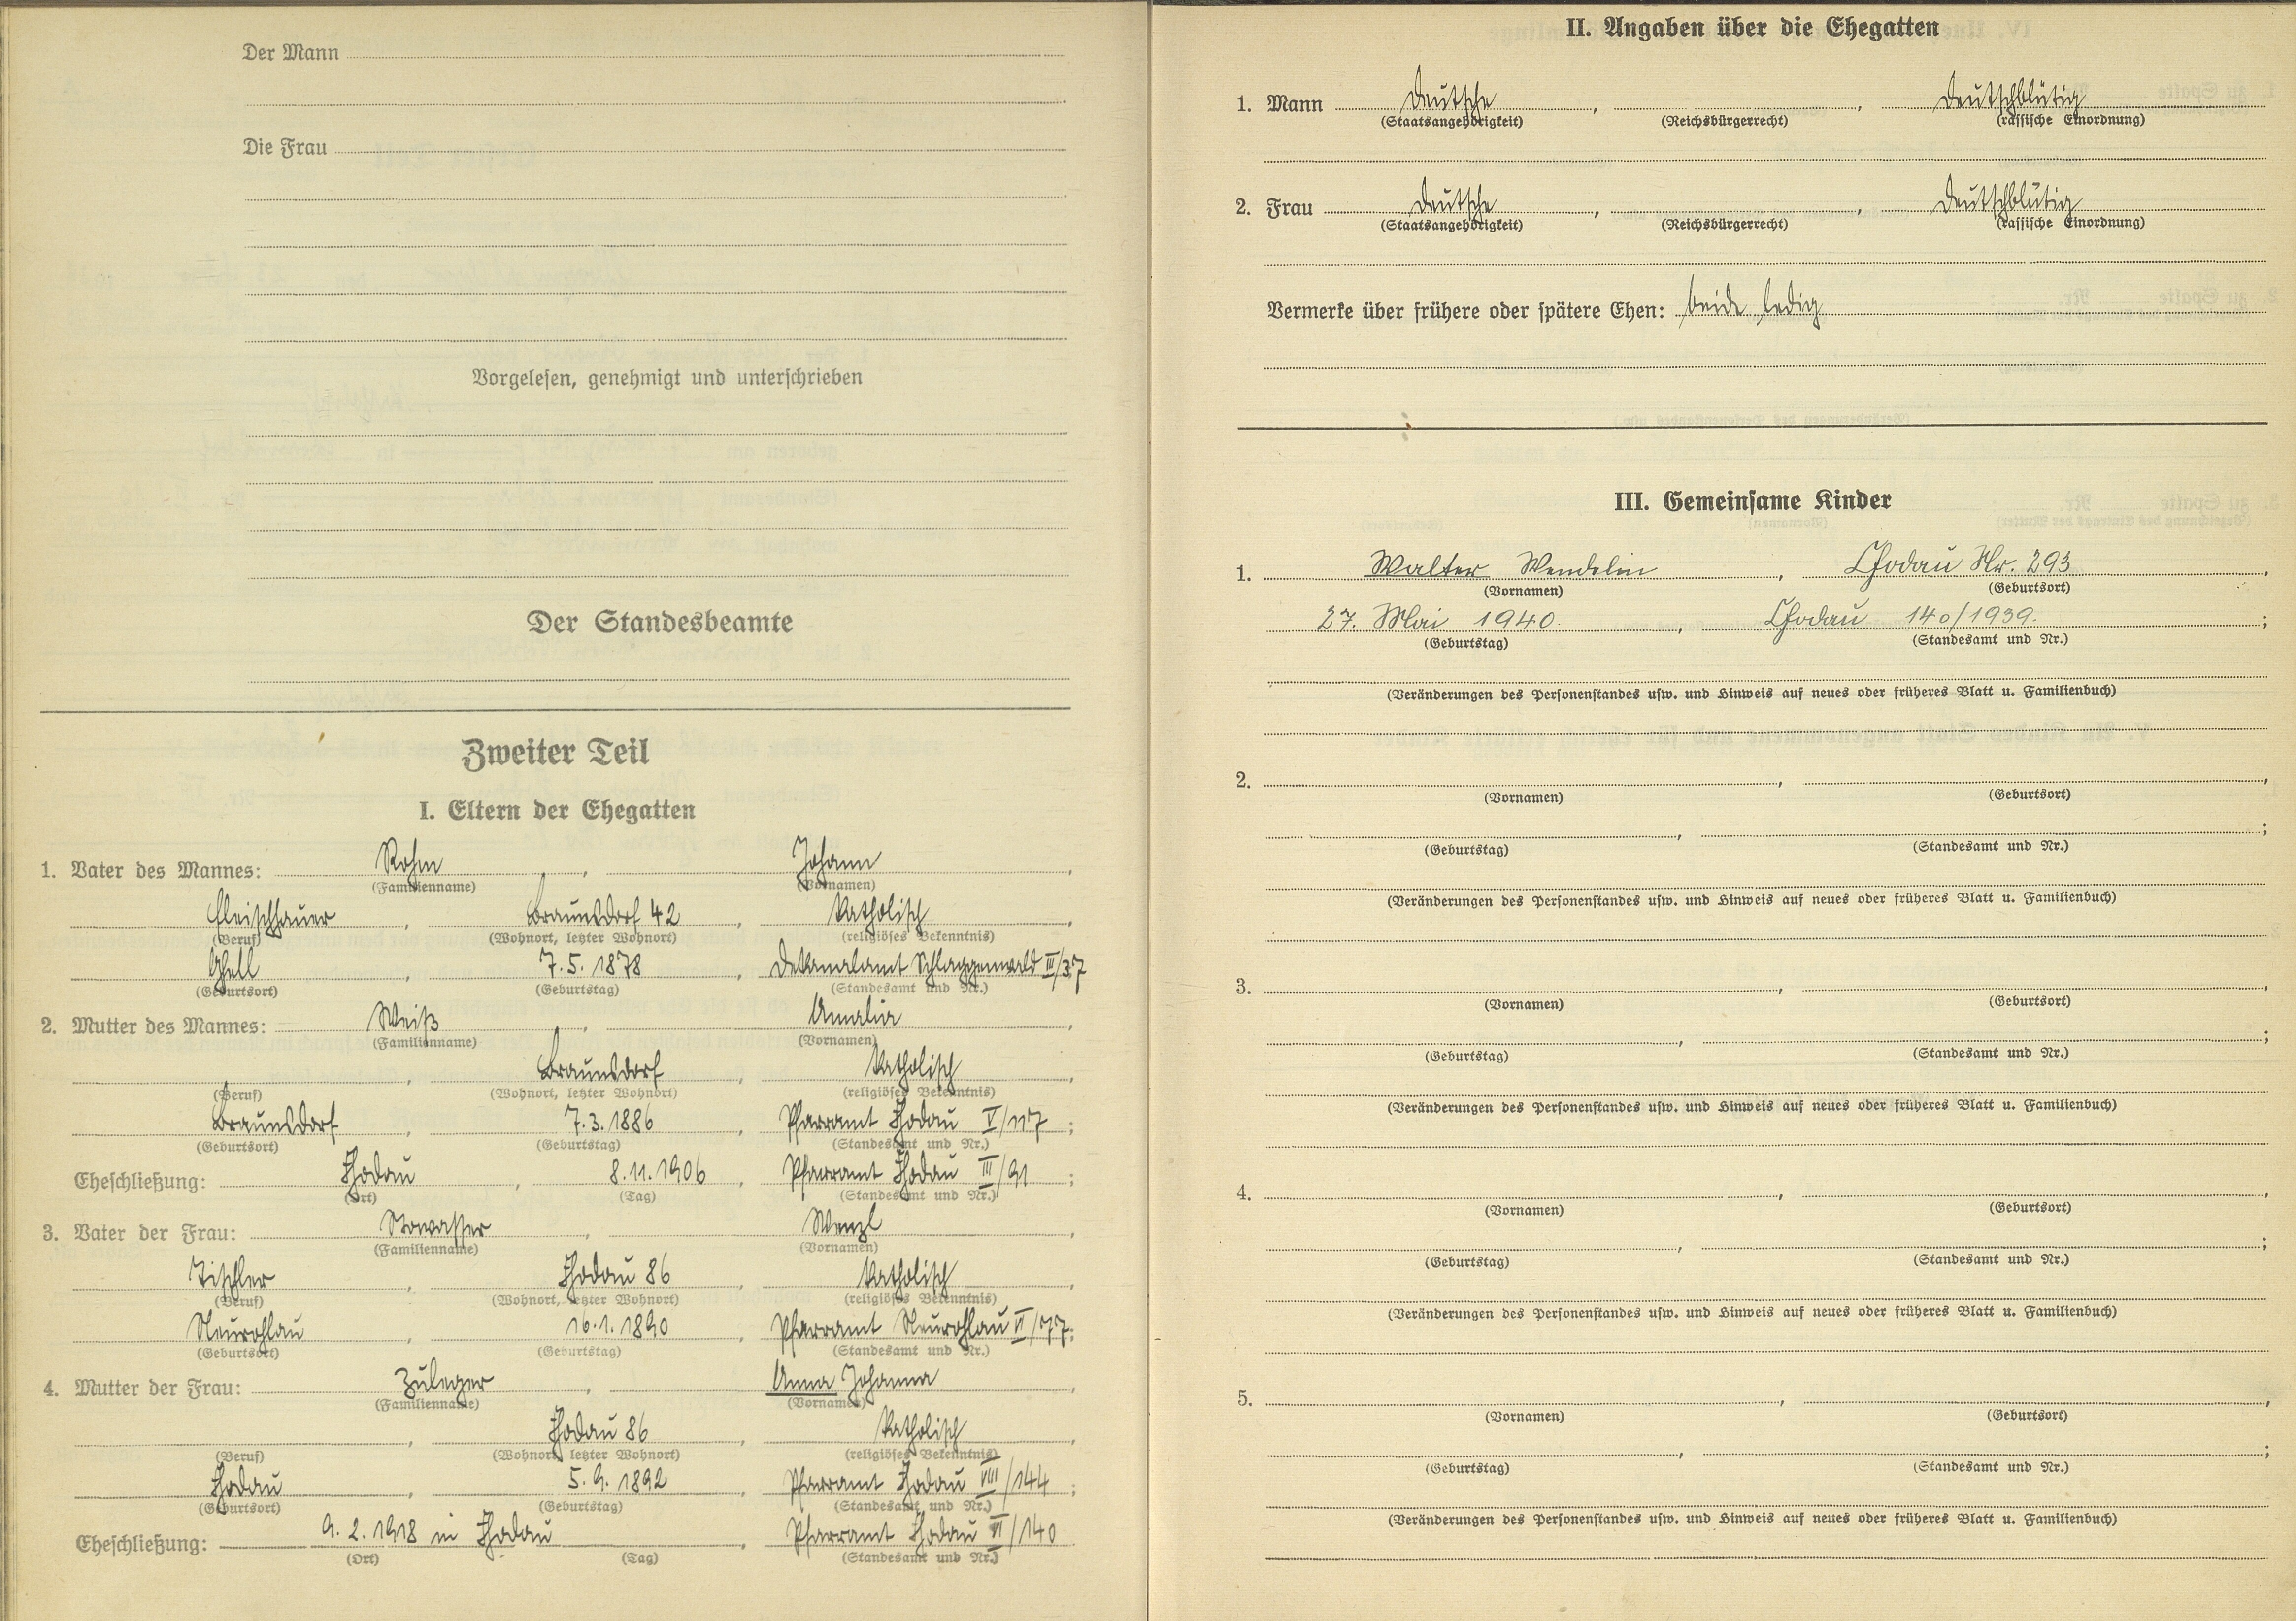 Der Mann
Die Frau
Vorgelesen, genehmigt und unterschrieben
Der Standesbeamte
Zweiter Teil
I. Eltern der Ehegatten
1. Vater des Mannes: Rohm, Johann,
(Familienname) (Vornamen)
Fleischhauer, Braunsdorf 42, katholisch,
(Beruf) (Wohnort, letzter Wohnort) (religiöses Bekenntnis)
Gfell, 7.5.1878, Dekanalamt Schlaggenwald III/37
(Geburtsort) (Geburtstag) (Standesamt und Nr.)
2. Mutter des Mannes: Weiß, Amalia,
(Familienname) (Vornamen)
, Braunsdorf, katholisch,
(Beruf) (Wohnort, letzter Wohnort) (religiöses Bekenntnis)
Braunsdorf, 7.3.1886, Pfarramt Chodau V/117;
(Geburtsort) (Geburtstag) (Standesamt und Nr.)
Eheschließung: Chodau, 8.11.1906, Pfarramt Chodau III/91;
(Ort) (Tag) (Standesamt und Nr.)
3. Vater der Frau: Stowasser, Wenzl,
(Familienname) (Vornamen)
Tischler, Chodau 86, katholisch,
(Beruf) (Wohnort, letzter Wohnort) (religiöses Bekenntnis)
Neurohlau, 16.1.1890, Pfarramt Neurohlau VI/177;
(Geburtsort) (Geburtstag) (Standesamt und Nr.)
4. Mutter der Frau: Zuleger, Anna Johanna,
(Familienname) (Vornamen)
, Chodau 86, katholisch,
(Beruf) (Wohnort, letzter Wohnort) (religiöses Bekenntnis)
Chodau, 5.9.1892, Pfarramt Chodau VIII/144;
(Geburtsort) (Geburtstag) (Standesamt und Nr.)
Eheschließung: 9.2.1918 in Chodau, Pfarramt Chodau VI/140
(Ort) (Tag) (Standesamt und Nr.)
II. Angaben über die Ehegatten
1. Mann Deutsche, , Deutschblütig
(Staatsangehörigkeit) (Reichsbürgerrecht) (rassische Einordnung)
2. Frau Deutsche, , Deutschblütig
(Staatsangehörigkeit) (Reichsbürgerrecht) (rassische Einordnung)
Vermerke über frühere oder spätere Ehen: beide ledig
III. Gemeinsame Kinder
1. Walter Wendelin, Chodau Nr. 293,
(Vornamen) (Geburtsort)
27. Mai 1940., Chodau 140/1939.;
(Geburtstag) (Standesamt und Nr.)
(Veränderungen des Personenstandes usw. und Hinweis auf neues oder früheres Blatt u. Familienbuch)
2. , ,
(Vornamen) (Geburtsort)
, ;
(Geburtstag) (Standesamt und Nr.)
(Veränderungen des Personenstandes usw. und Hinweis auf neues oder früheres Blatt u. Familienbuch)
3. , ,
(Vornamen) (Geburtsort)
, ;
(Geburtstag) (Standesamt und Nr.)
(Veränderungen des Personenstandes usw. und Hinweis auf neues oder früheres Blatt u. Familienbuch)
4. , ,
(Vornamen) (Geburtsort)
, ;
(Geburtstag) (Standesamt und Nr.)
(Veränderungen des Personenstandes usw. und Hinweis auf neues oder früheres Blatt u. Familienbuch)
5. , ,
(Vornamen) (Geburtsort)
, ;
(Geburtstag) (Standesamt und Nr.)
(Veränderungen des Personenstandes usw. und Hinweis auf neues oder früheres Blatt u. Familienbuch)